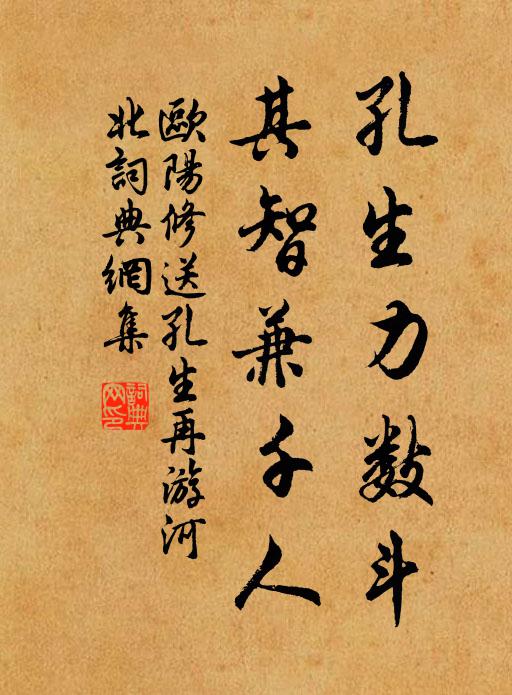 孔生力数斗
其智兼千人
歐陽修送孔生再游河
北詞典網集
詞典
网印